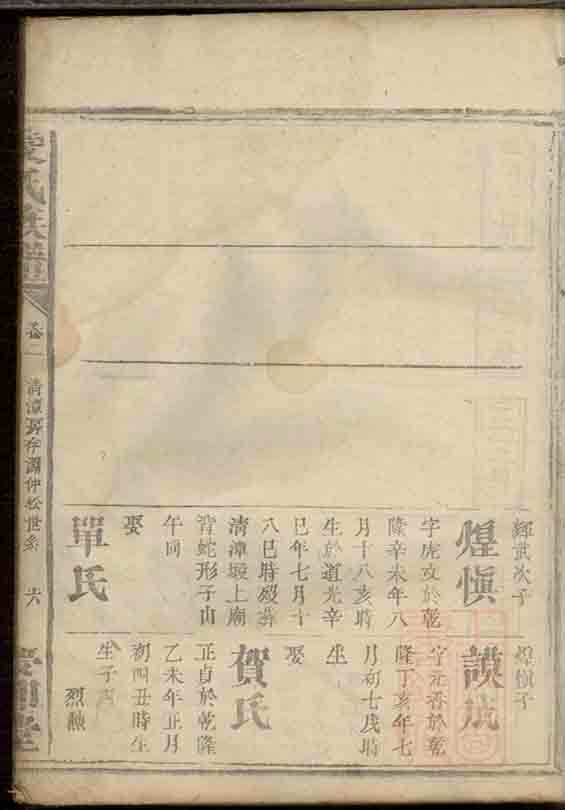 輝武次子
煌慎
字虎文於乾
隆辛未年八
月十八亥時
生於道光辛
巳年七月十
八巳時歿葬
清漳塅上廟
背蛇形子山
午向
娶
單氏
煌慎子
謨成
字元香於乾
隆丁亥年七
月初七戌時
生
娶
賀氏
正貞於乾隆
乙未年正月
初四丑時生
生子
烈勳
氏族譜
卷二
清漳房存淵仲松世系
十六